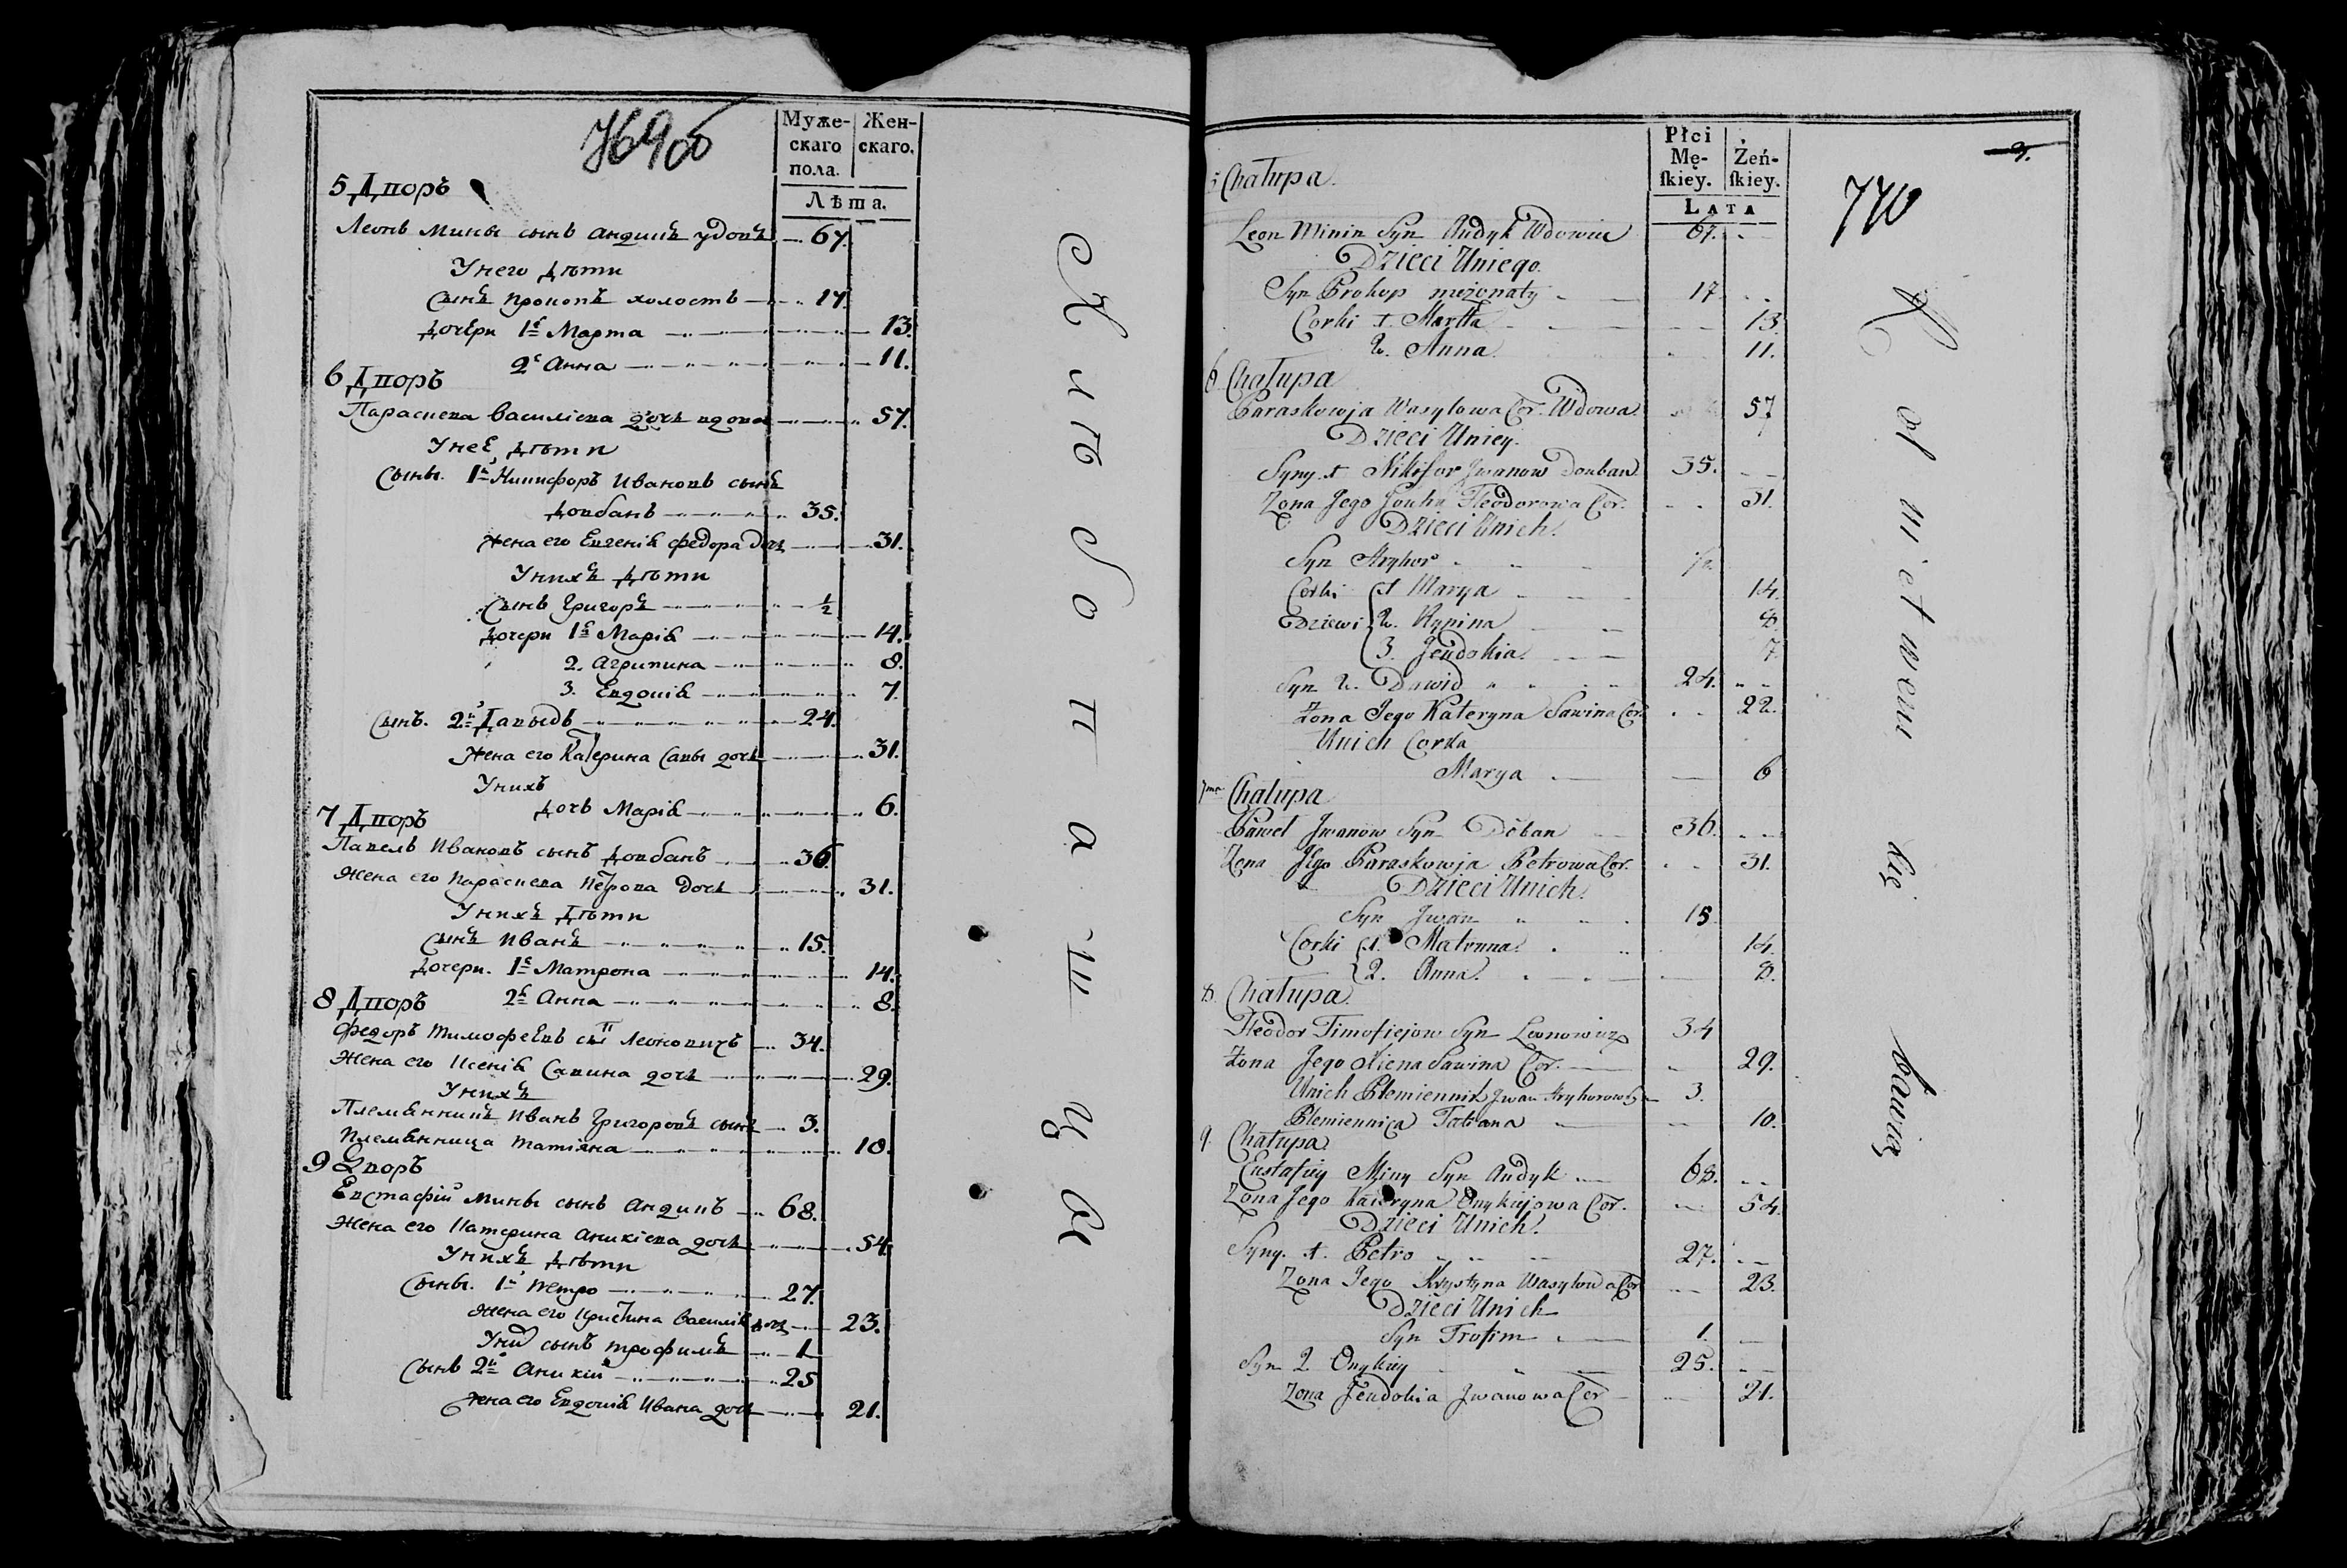 769об
Муже-
скаго
пола.
Жен-
скаго.
Лѣта.
5 Дворъ
Леонъ Мины сынъ Андикъ удовъ 67.
У него дѣти
Сынъ Прокопъ холостъ 17.
Дочери 1я Марта 13.
2я Анна 11.
6 Дворъ
Параскева Василіева дочь вдова 57.
У неё дѣти
Сыны. 1й Никифоръ Ивановъ сынъ
Довбанъ 35.
Жена его Евгенія Федора дочь 31.
У нихъ дѣти
Сынъ Григоръ ½
Дочери 1я Марія 14.
2. Агрипина 8.
3. Евдокія 7.
Сынъ. 2й Давыдъ 24.
Жена его Катерина Савы дочь 31.
У нихъ
Дочь Марія 6.
7 Дворъ
Павелъ Ивановъ сынъ Довбанъ 36.
Жена его Параскева Петрова дочь 31.
У нихъ дѣти
Сынъ Иванъ 15.
Дочери. 1я Матрона 14.
2я Анна 8.
8 Дворъ
Федоръ Тимофеевъ сынъ Леоновичъ 34.
Жена его Ксенія Савина дочь 29.
У нихъ
Племянникъ Иванъ Григоровъ сынъ 3.
Племянница Татіяна 10.
9 Дворъ
Евстафій Мины сынъ Андикъ 68.
Жена его Катерина Аникіева дочь 54.
У нихъ дѣти
Сыны. 1й Петро 27.
Жена его Кристина Василія дочь 23.
У нихъ сынъ Трофимъ 1
Сынъ 2й Аникій 25
Жена его Евдокія Ивана дочь 21.
Płci
Mę-
ſkiey.
Żeń-
ſkiey.
LATA
3.
770
5 Chałupa.
Leon Minin Syn Andyk Wdowiec 67.
Dzieci Uniego.
Syn Prokop nieżonaty 17
Corki 1. Martta 13.
2. Anna 11.
6 Chałupa
Paraskowja Wasylowa Cor. Wdowa 57
Dzieci Uniey.
Syny. 1 Nikifor Jwanow Douban 35.
Zona Jego Jouha Fteodorowa Cor. 31.
Dzieci Unich.
Syn Hryhor ½
Corki 1 Marya 14.
Dziewi 2. Hypina 8.
3. Jeudokia 7
Syn 2. Dawid 24.
Zona Jego Kateryna Sawina Cor. 22.
Unich Corka
Marya 6
7ma Chałupa
Paweł Jwanow Syn Doban 36.
Zona Jego Paraskowja Petrowa Cor. 31.
Dzieci Unich.
Syn Jwan 15
Corki 1. Matruna 14.
2. Anna. 8.
8. Chałupa.
Fteodor Timofiejow Syn Leonowicz 34
Zona Jego Xiena Sawina Cor. 29.
Unich Plemiennik Jwan Hryhorow Syn 3.
Plemiennica Tatiana 10.
9 Chałupa
Eustafiy Miny Syn Andyk 68.
Zona Jego Kateryna Onykiejowa Cor. 54.
Dzieci Unich.
Syny. 1. Petro 27.
Zona Jego Krystyna Wasylowa Cor 23.
Dzieci Unich
Syn Trofim 1.
Syn 2 Onykiy 25.
Zona Jeudokia Jwanowa Cor 21.